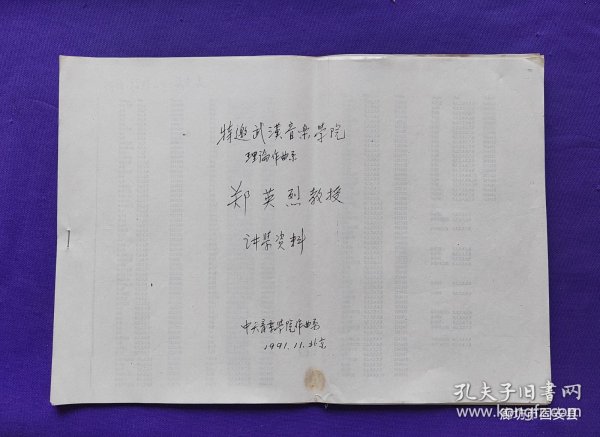 特邀武漢音楽學院
理論作曲系
郑英烈教授
讲学资料
中央音乐学院作曲系
1991.11.北京
孔夫子旧书网
www.kongfz.com
廊坊市固安县